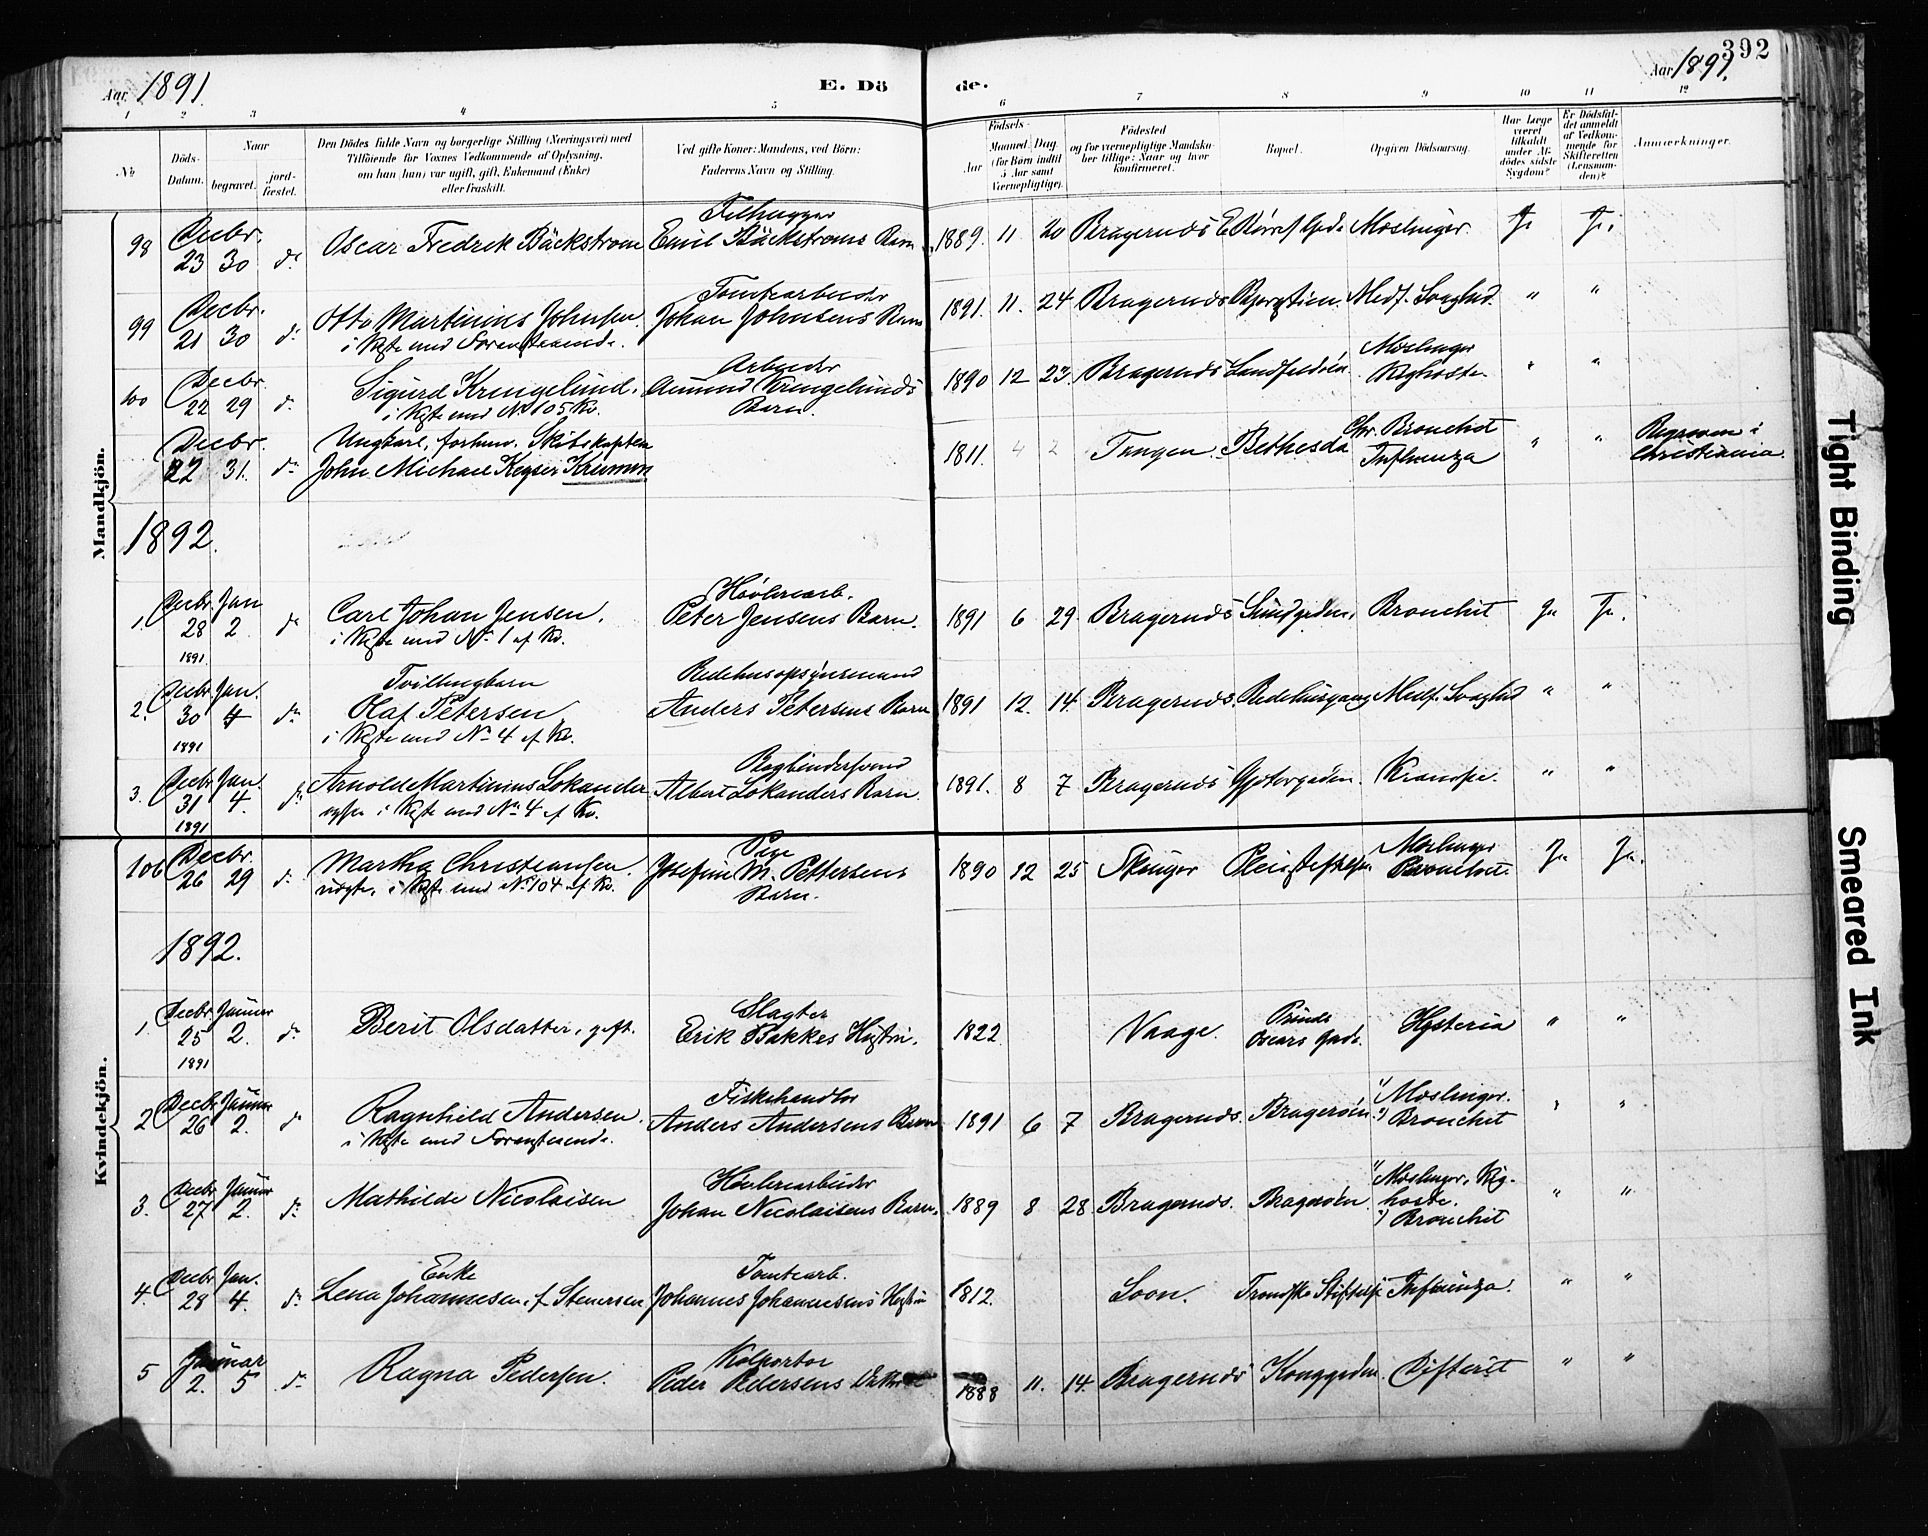 392
Aar 1891.
E. Dö
de.
Aar 1891.
1 2 3 4 5 6 7 8 9 10 11 12
№
Döds-
Datum.
Naar
begravet.
jord-
fæstet.
Den Dödes fulde Navn og borgerlige Stilling (Næringsvei) med
Tilföiende for Voxnes Vedkommende af Oplysning,
om han (hun) var ugift, gift, Enkemand (Enke)
eller fraskilt.
Ved gifte Koner: Mandens, ved Börn:
Faderens Navn og Stilling.
Födsels-
Aar
Maaned Dag
(for Börn indtil
5 Aar samt
Værnepligtige).
Födested
og for værnepligtige Mandskaber tillige: Naar og hvor
konfirmeret.
Bopæl.
Opgiven Dödsaarsag.
Har Læge
været
tilkaldt
under Afdödes sidste
Sygdom?
Er Dödsfaldet anmeldt
af Vedkommende for
Skifteretten
(Lensmanden)?
Anmærkninger.
Mandkjön.
Decbr. Filhugger
98 23 30 do Oscar Fredrik Bäckstrøm Emil Bäckstrøms Barn 1889. 11 20 Bragernæs Meslinger. Ja Ja.
Decbr. Tomtearbeider
99 21 30 do Otto Martinius Johnsen. Johan Johnsens Barn 1891. 11. 24 Bragernæs Medf. Svaghed. " "
i Kiste med Foranstaaende.
Decbr. Arbeider Meslinger
100 22 29 do Sigurd Krengelund. Amund Krengelunds 1890 12 23 Bragernæs Landfaldøen Kighoste. " "
i Kiste med No 105 Kv. Barn.
Decbr. Ungkarl, forhenv. Skibskaptein Chr. Bronchit Begraven i
22 31. do John Michael Keyser Krumm 1811. 4 2 Tangen Bethesda Influenza " " Christiania.
1892.
Decbr. Jan Høvleriarb.
1. 28 2. do Carl Johan Jensen. Peter Jensens Barn. 1891 6 29 Bragernæs Sundgaden. Bronchit Ja Ja.
1891. i Kiste med No 1 af Kv.
Decbr. Jan. Tvillingbarn Redehusopsynsmand
2. 30 4 do Olaf Petersen Anders Petersens Barn 1891 12. 14. Bragernæs. Medf. Svaghed " "
1891 i Kiste med No 4 af Kv.
Decbr. Jan. Bogbindersvend
3. 31 4. do Arnold Martinius Lokander Albert Lokanders Barn. 1891. 8 7 Bragernæs Gjetergaden. Krampe. " "
1891 i Kiste med No 4 af Kv.
Kvindekjön.
Decbr. Pige Meslinger
106 26 29 do Martha Christiansen. Josefine M. Pettersens 1890 12 25 Skouger Bronchit. Ja Ja.
i Kiste med No 104 af Kv. Barn.
1892.
Decbr. Januar Slagter Prinds
1. 25 2. do Berit Olsdatter, gift. Erik Bakkes Hustru. 1822 Vaage. Oscars Gade. Hysteria " "
1891
Decbr. Januar Fiskehandler Meslinger.
2 26 2. do Ragnhild Andersen. Anders Andersens Barn 1891 6 7 Bragernæs. Bragerøen Bronchit " "
i Kiste med Foranstaaende.
Decbr Januar Høvleriarbeider Meslinger, Kig-
3. 27 2. do Mathilde Nicolaisen Johan Nicolaisens Barn. 1889 8 28 Bragernæs. Bragerøen hoste. " "
Bronchit
Decbr Jan. Enke Tomtearb.
4. 28 4. do Lena Johannesen, f. Stenersen Johannes Johannesens Hustru 1812. Soon. Tronstke Stiftelse Influenza. " "
Januar Kolportør
5 2. 5 do Ragna Pedersen. Peder Pedersens Datter 1888 11. 14. Bragernæs Kongegaden. Difterit " "
Tight Binding
Smeared Ink